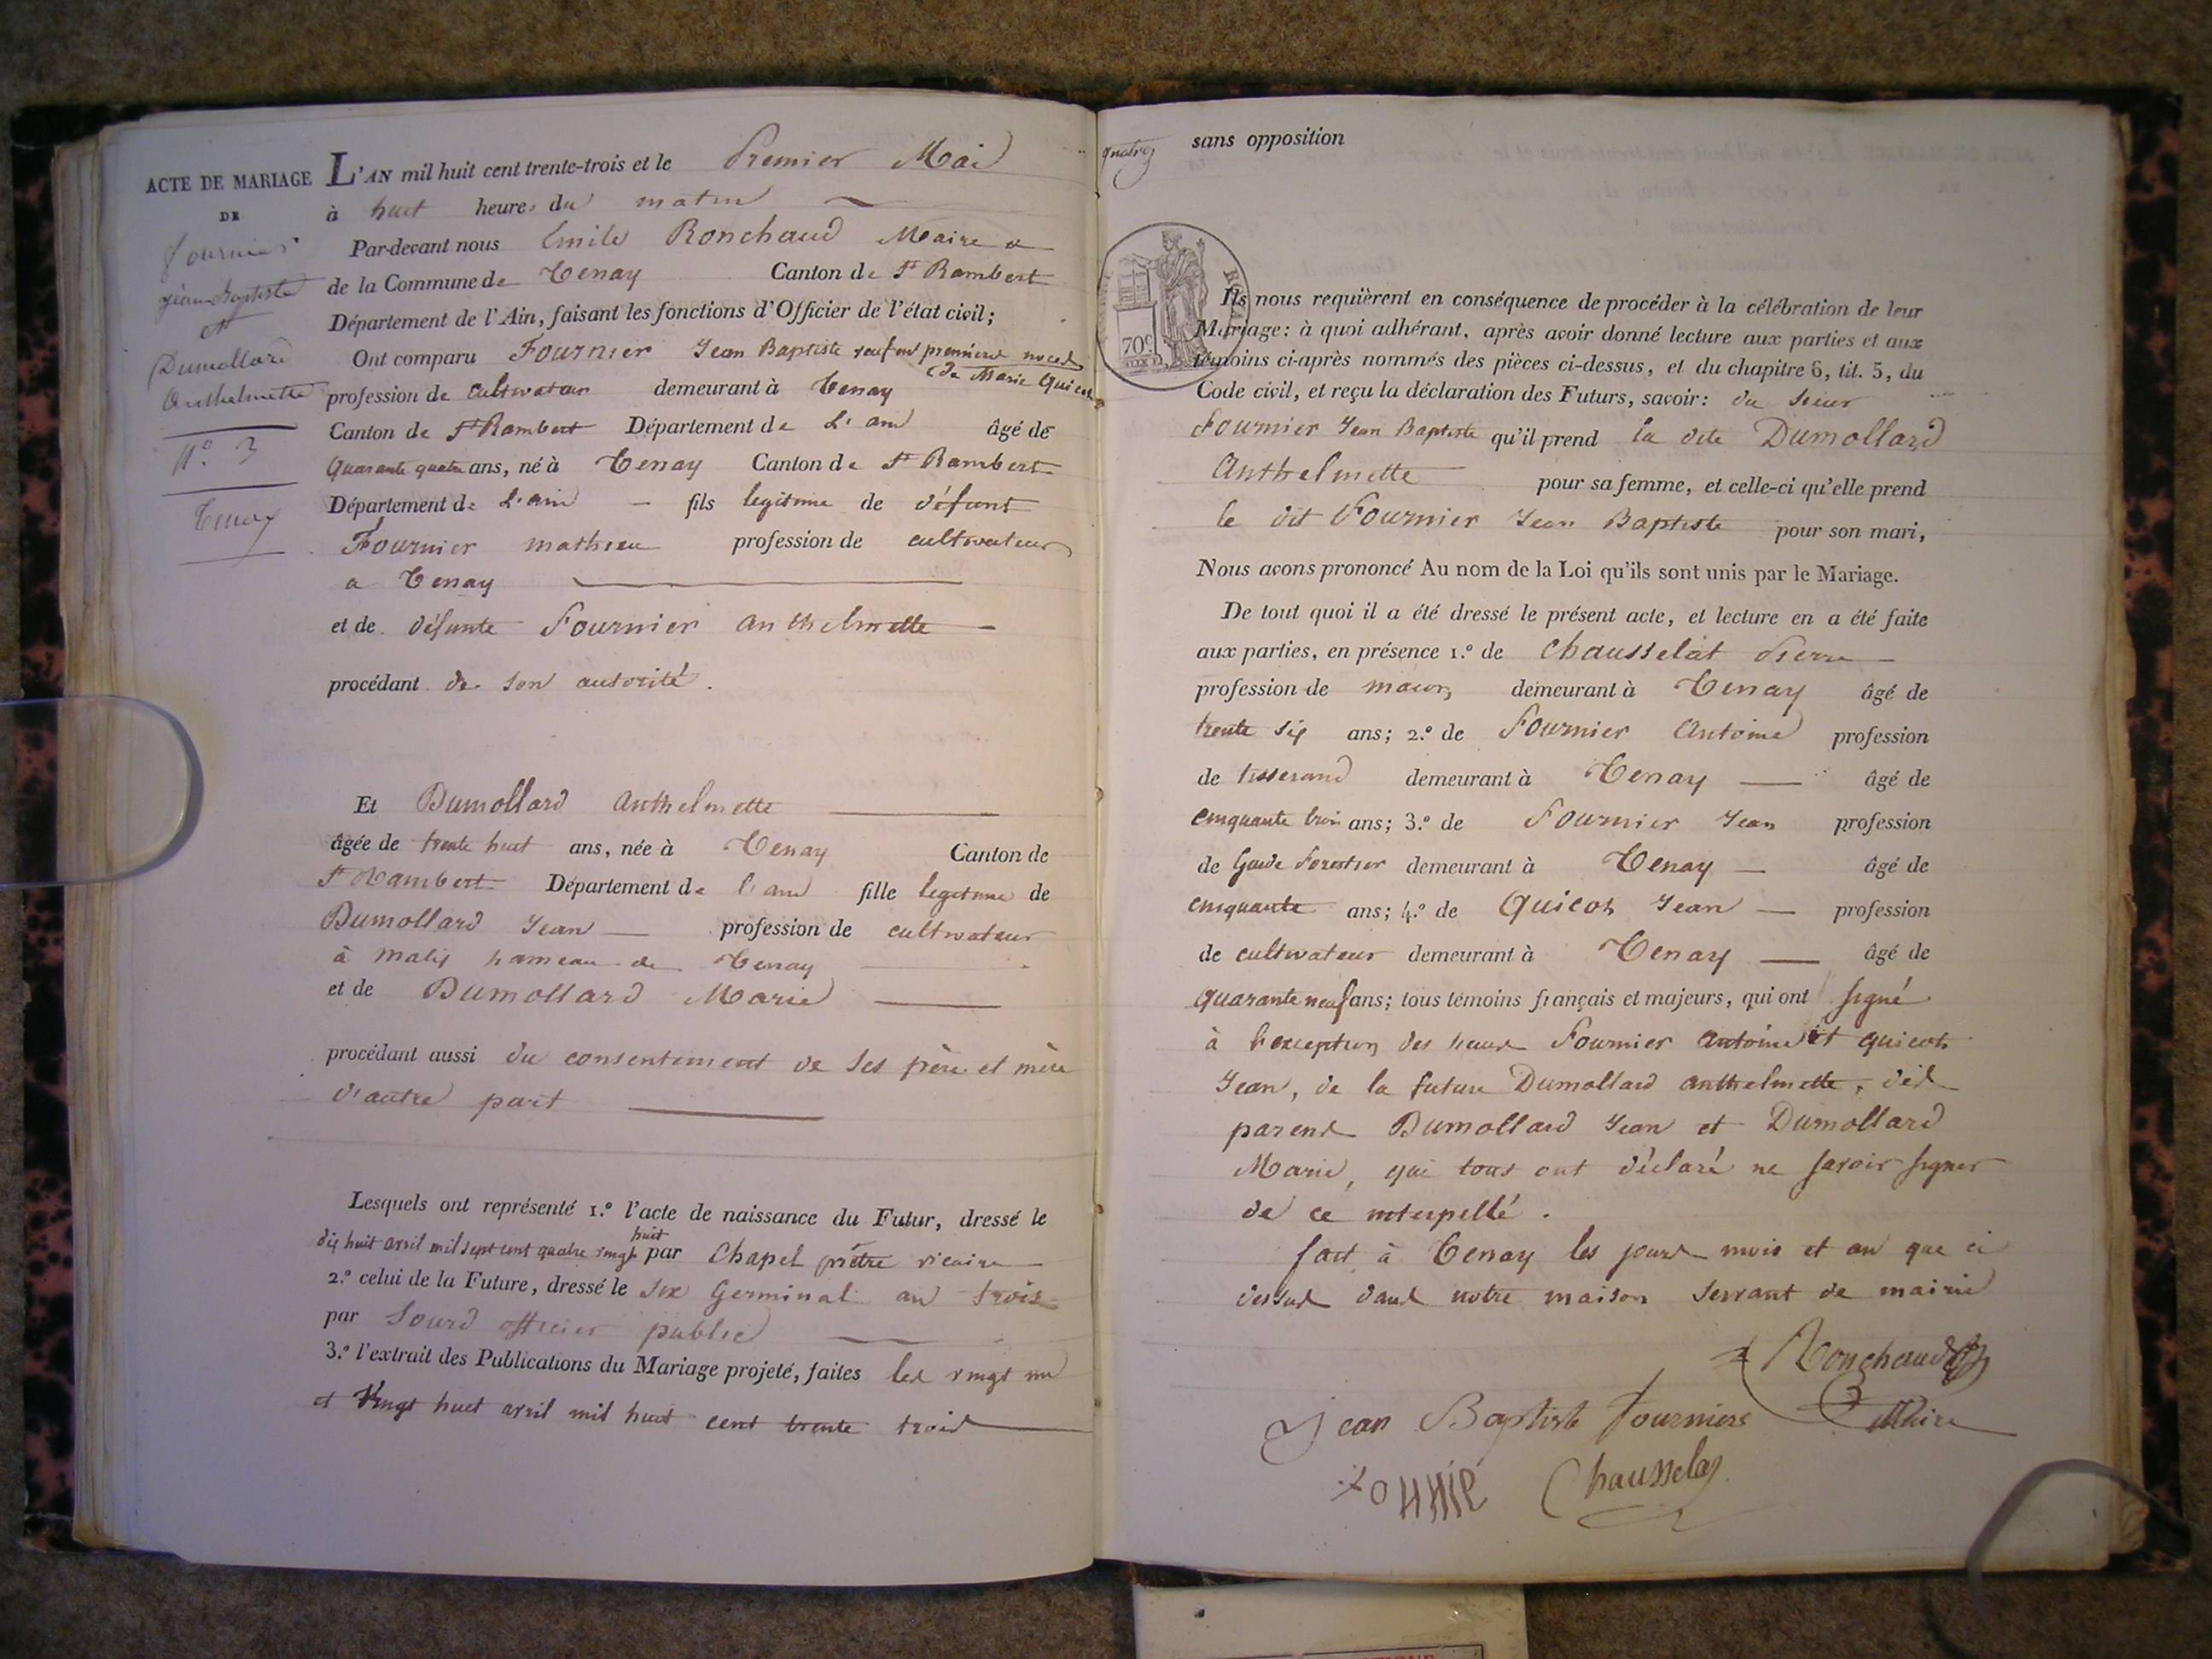 ACTE DE MARIAGE
DE
Fournier
Jean Baptiste
et
Dumollard
Anthelmette
N.º 3
Tenay
L'AN mil huit cent trente-trois et le Premier Mai
à huit heures du matin
Par-devant nous Emile Ronchaud Maire
de la Commune de Tenay Canton de St Rambert
Département de l'Ain, faisant les fonctions d'Officier de l'état civil;
Ont comparu Fournier Jean Baptiste veuf en premieres noces
de Marie Quicot
profession de cultivateur demeurant à Tenay
Canton de St Rambert Département de L'ain âgé de
quarante quatre ans, né à Tenay Canton de St Rambert
Département de L'ain fils legitime de défunt
Fournier mathieu profession de cultivateur
a Tenay
et de défunte Fournier anthelmette
procédant de son autorité.
Et Dumollard Anthelmette
âgée de trente huit ans, née à Tenay Canton de
St Rambert Département de l'ain fille legitime de
Dumollard Jean profession de cultivateur
à malix hameau de Tenay
et de Dumollard Marie
procédant aussi du consentement de ses père et mère
d'autre part
Lesquels ont représenté 1.º l'acte de naissance du Futur, dressé le
dix huit avril mil sept cent quatre vingt huit par Chapel prêtre vicaire
2.º celui de la Future, dressé le six Germinal an trois
par Sourd officier public
3.º l'extrait des Publications du Mariage projeté, faites les vingt un
et vingt huit avril mil huit cent trente trois
sans opposition
70 c.
Ils nous requièrent en conséquence de procéder à la célébration de leur
Mariage: à quoi adhérant, après avoir donné lecture aux parties et aux
témoins ci-après nommés des pièces ci-dessus, et du chapitre 6, tit. 5, du
Code civil, et reçu la déclaration des Futurs, savoir: du sieur
Fournier Jean Baptiste qu'il prend la dite Dumollard
Anthelmette pour sa femme, et celle-ci qu'elle prend
le dit Fournier Jean Baptiste pour son mari,
Nous avons prononcé Au nom de la Loi qu'ils sont unis par le Mariage.
De tout quoi il a été dressé le présent acte, et lecture en a été faite
aux parties, en présence 1.º de Chausselat Pierre
profession de maçon demeurant à Tenay âgé de
trente six ans; 2.º de Fournier Antoine profession
de tisserand demeurant à Tenay âgé de
cinquante trois ans; 3.º de Fournier Jean profession
de Garde forestier demeurant à Tenay âgé de
cinquante ans; 4.º de Quicot Jean profession
de cultivateur demeurant à Tenay âgé de
quarante neuf ans; tous témoins français et majeurs, qui ont signé
à l'exception des sieurs Fournier Antoine et quicot
Jean, de la future Dumollard anthelmette, des
parens Dumollard Jean et Dumollard
Marie, qui tous ont déclaré ne savoir signer
de ce interpellé.
fait à Tenay les jours mois et an que ci
dessus dans notre maison servant de mairie
Ronchaud
Maire
Jean Baptiste fourniers
Chausselat